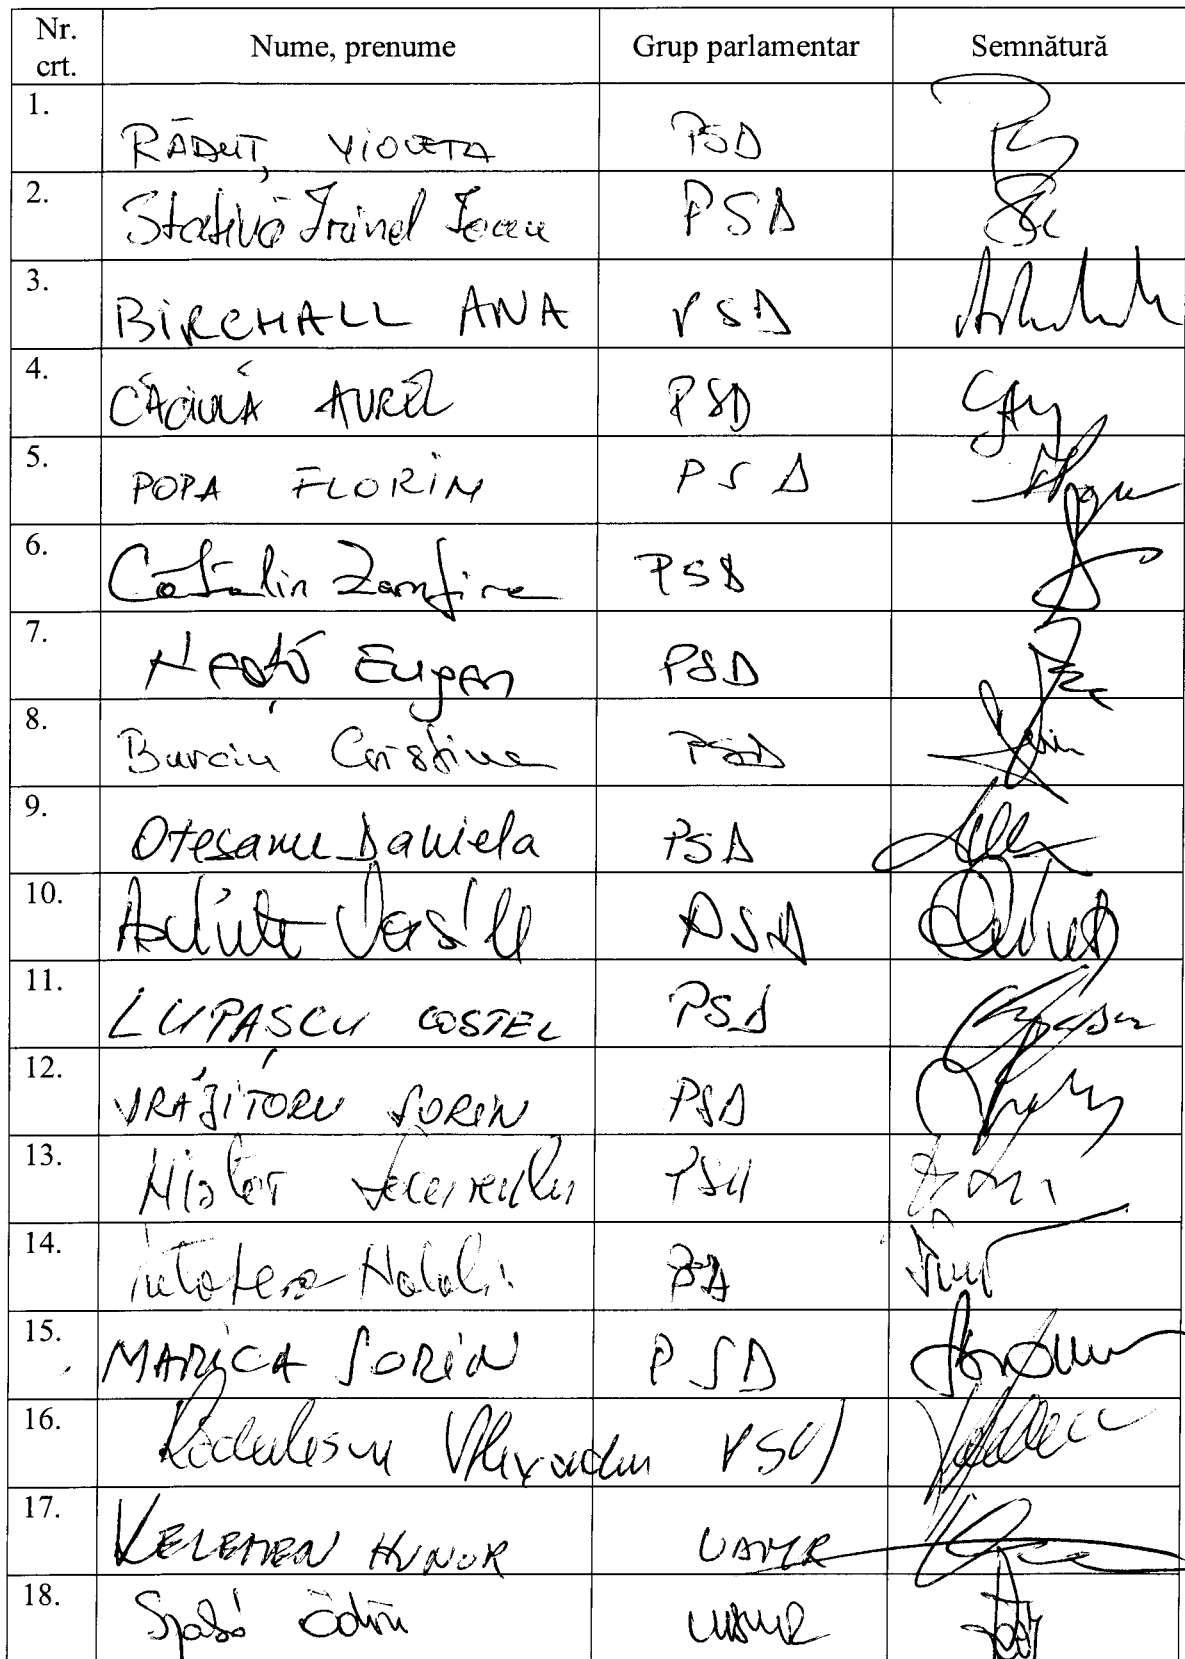 Nr. crt. Nume, prenume Grup parlamentar Semnătură
1. RĂDUȚ VIOLETA PSD
2. Stativă Irinel Ioan PSD
3. BIRCHALL ANA PSD
4. CĂCIULĂ AUREL PSD
5. POPA FLORIN PSD
6. Cătălin Zamfira PSD
7. Neață Eugen PSD
8. Burciu Cristina PSD
9. Otesanu Daniela PSD
10. Vasile PSD
11. LUPASCU COSTEL PSD
12. VRĂJITORU SORIN PSD
13. Nistor PSD
14. Intotero Natalia PSD
15. MARICA SORIN PSD
16. Rădulescu Alexandru PSD
17. KELEMEN HUNOR UDMR
18. Szabó Ödön UDMR